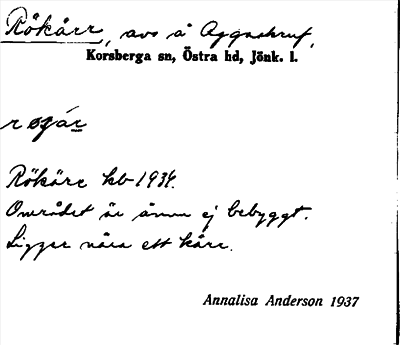 Rökärr, avs å Aggaskruv,
Korsberga sn, Östra hd, Jönk. l.
Rökärr kb-1934.
Området är ännu ej bebyggt.
Ligger nära ett kärr.
Annalisa Anderson 1937